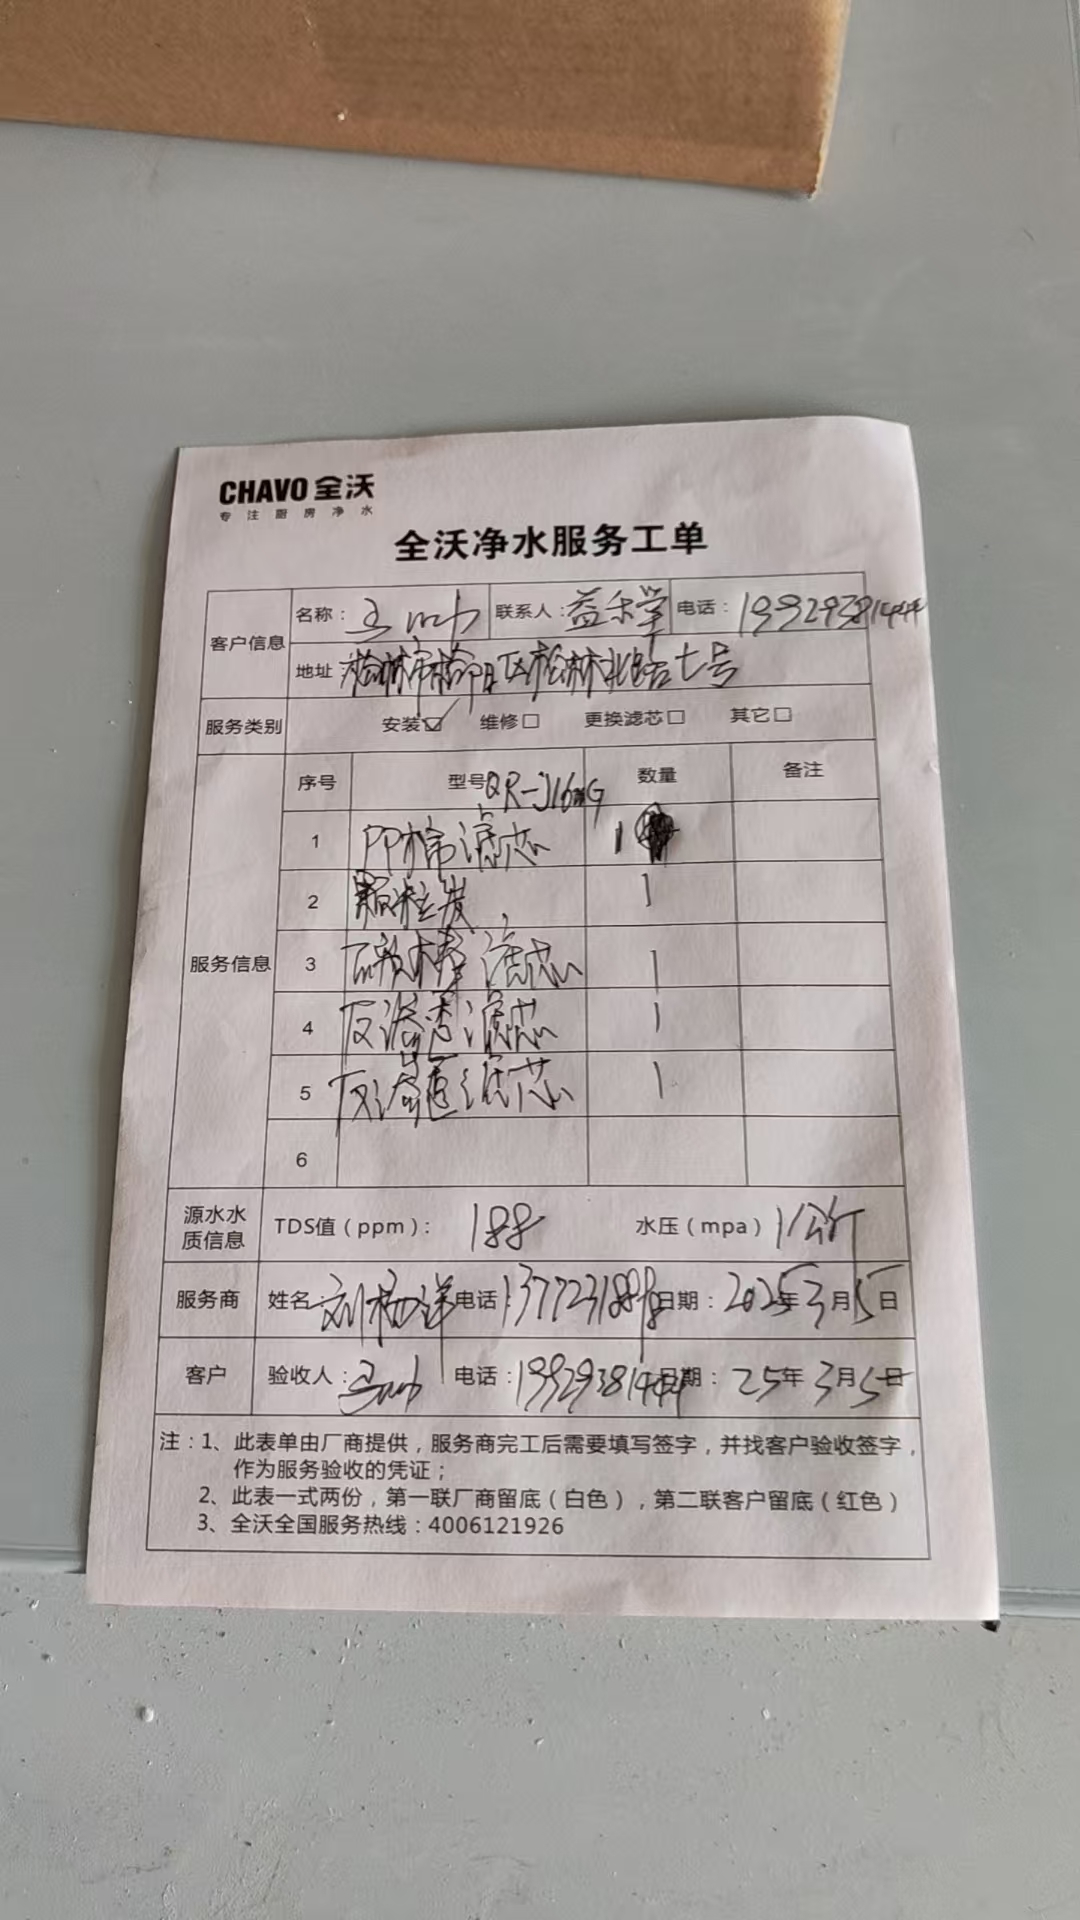 CHAVO 全沃
专注厨房净水
全沃净水服务工单
客户信息 名称： 联系人：益禾堂 电话：19929381444
地址 榆林市榆阳区榆林北路七号
服务类别 安装☑ 维修□ 更换滤芯□ 其它□
服务信息 序号 型号QR-J16 G 数量 备注
1 PP棉滤芯 1
2 颗粒炭 1
3 碳棒滤芯 1
4 反渗透滤芯 1
5 反渗透滤芯 1
6
源水水质信息 TDS值（ppm）： 188 水压（mpa）1公斤
服务商 姓名：刘杨洋 电话：137723188 日期：2025年3月5日
客户 验收人： 电话：19929381444 日期：25年3月5日
注：1、此表单由厂商提供，服务商完工后需要填写签字，并找客户验收签字，
作为服务验收的凭证；
2、此表一式两份，第一联厂商留底（白色），第二联客户留底（红色）
3、全沃全国服务热线：4006121926